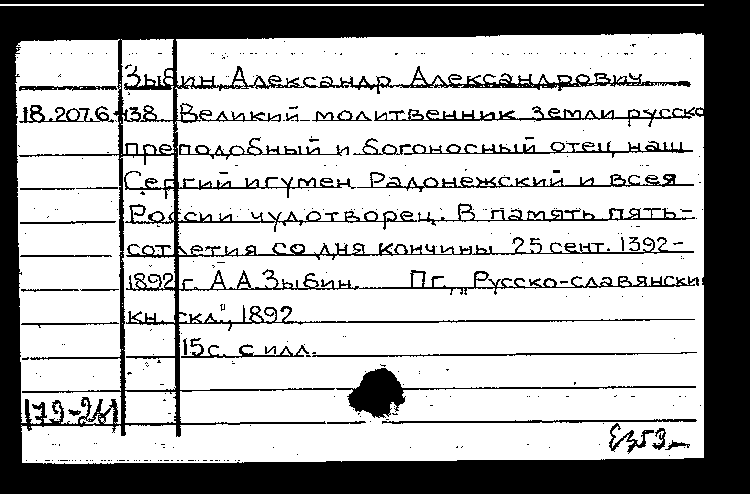 Зыбин, Александр Александрович.
18.207.6.138 Великий молитвенник земли русско
преподобный и богоносный отец наш
Сергий игумен Радонежский и всея
России чудотворец. В память пять-
сотлетия со дня кончины 25 сент. 1392-
1892 г. А.А.Зыбин. Пг., „Русско-славянски
кн. скл.", 1892.
15с. с илл.